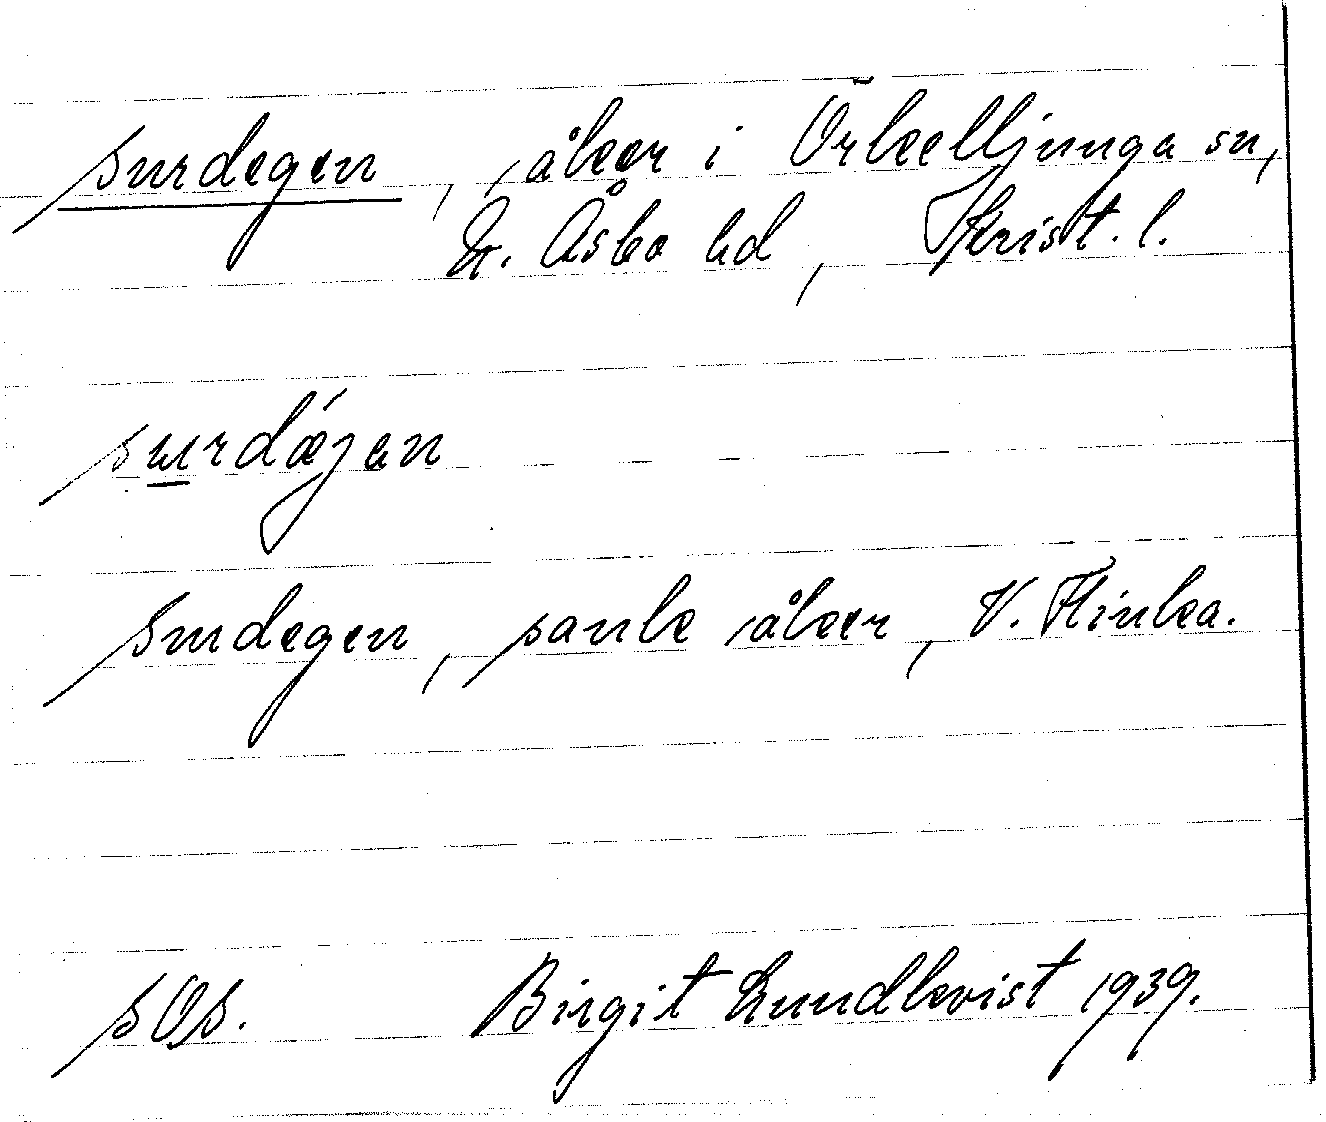 surdegen, åker i Örkelljunga sn,
N. Åsbo hd, Krist. l.
surdǽjen
surdegen, sank åker, V. Flinka.
s OS. Birgit Lundkvist 1939.